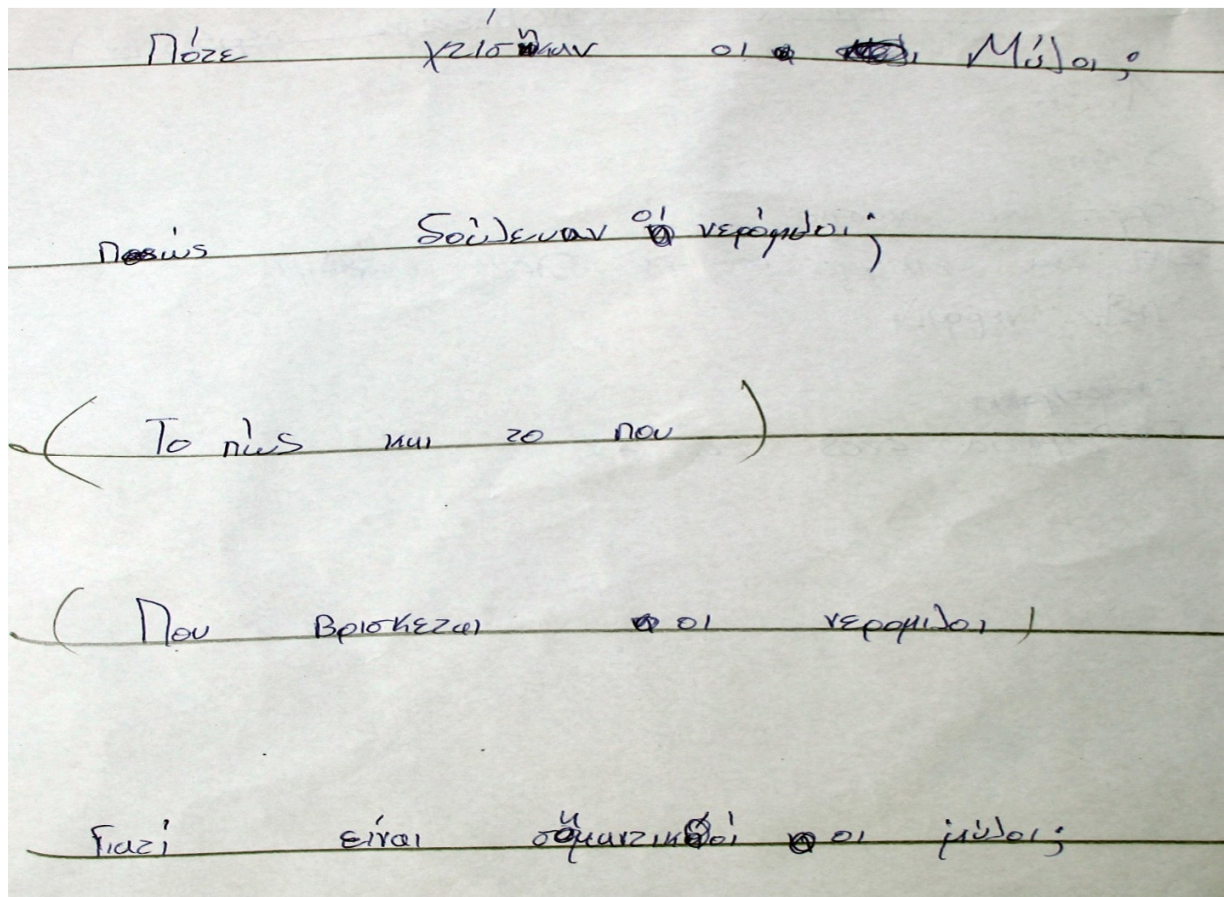 Πότε χτίσηκαν οι Μύλοι;
Πώς δούλευαν οι νερόμυλοι;
(Το πώς και το που)
(Που βρισκεται οι νερομιλοι)
Γιατί είναι σημαντικοί οι μύλοι;